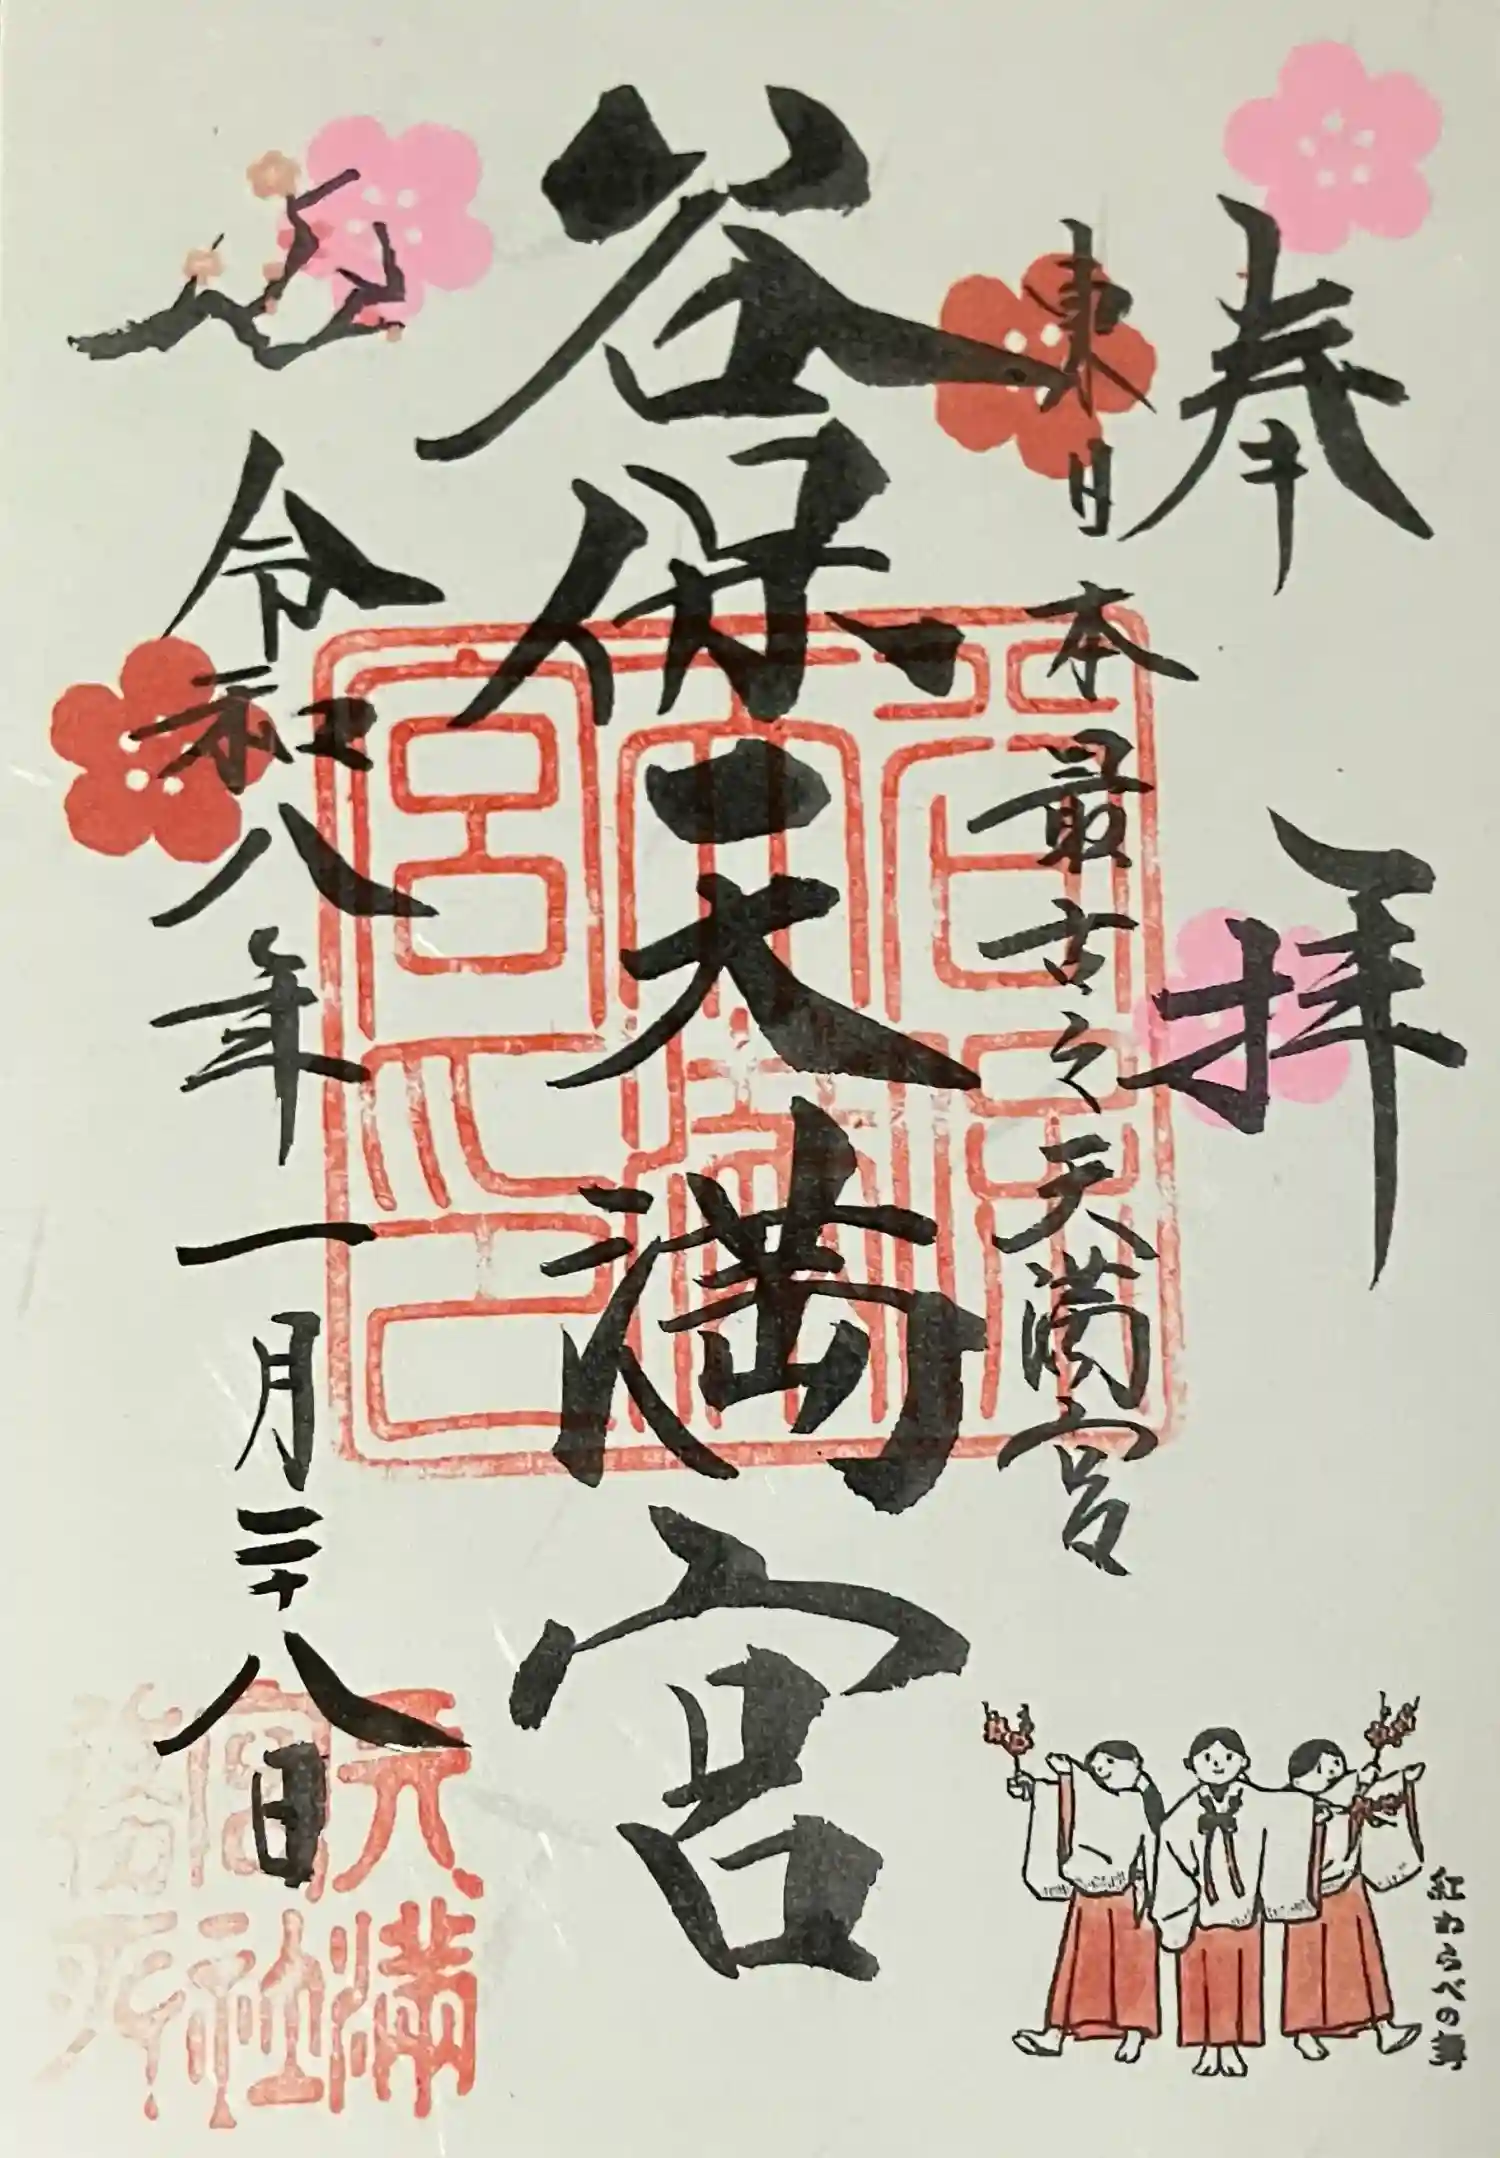 奉拝
東日本最古之天満宮
谷保天満宮
令和八年一月二十八日
天満宮社務所
紅わらべの舞